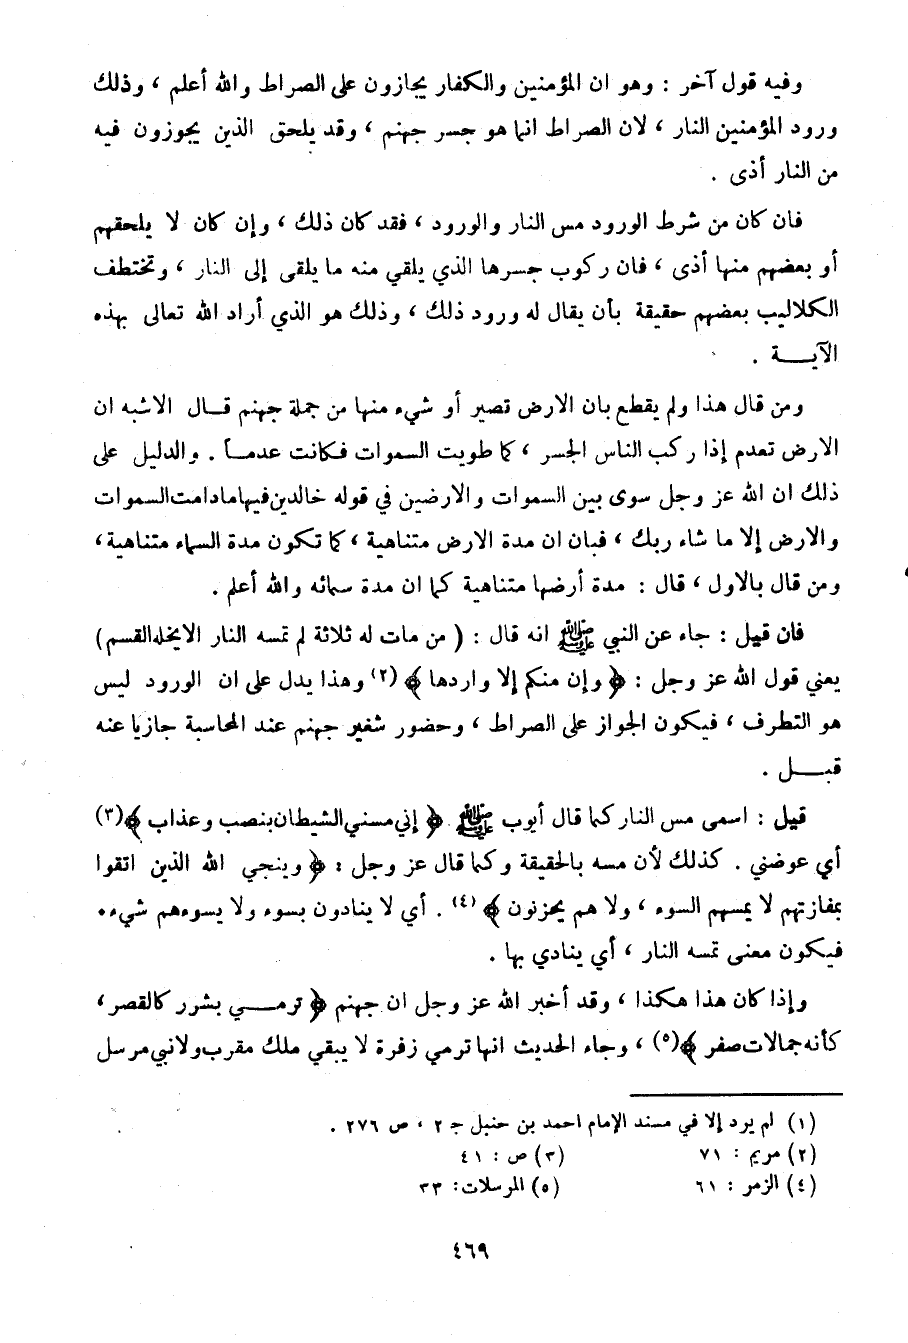 وفيه قول آخر : وهو ان المؤمنين والكفار يجازون على الصراط والله أعلم ، وذلك
ورود المؤمنين النار ، لان الصراط انما هو جسر جهنم ، وقد يلحق الذين يجوزون فيه
من النار أذى .
فان كان من شرط الورود مس النار والورود ، فقد كان ذلك ، وإن كان لا يلحقهم
أو بعضهم منها أذى ، فان ركوب جسرها الذي يلقي منه ما يلقى إلى النار ، وتختطف
الكلاليب بعضهم حقيقة بأن يقال له ورود ذلك ، وذلك هو الذي أراد الله تعالى بهذه
الآيـــة .
ومن قال هذا ولم يقطع بان الارض تصير أو شيء منها من جملة جهنم قـــال الاشبه ان
الارض تعدم إذا ركب الناس الجسر ، كما طويت السموات فكانت عدمــاً . والدليل على
ذلك ان الله عز وجل سوى بين السموات والارضين في قوله خالدين فيها ما دامت السموات
والارض إلا ما شاء ربك ، فبان ان مدة الارض متناهية ، كما تكون مدة السماء متناهية ،
ومن قال بالاول ، قال : مدة أرضها متناهية كما ان مدة سمائه والله أعلم .
فان قيل : جاء عن النبي ﷺ انه قال : ( من مات له ثلاثة لم تمسه النار الا يخله القسم )
يعني قول الله عز وجل : ﴿ وإن منكم إلا واردها ﴾ (٢) وهذا يدل على ان الورود ليس
هو التطرف ، فيكون الجواز على الصراط ، وحضور شفير جهنم عند المحاسبة جازيا عنه
قبـــل .
قيل : اسمى مس النار كما قال أيوب ﷺ ﴿ إني مسني الشيطان بنصب وعذاب ﴾ (٣)
أي عوضني . كذلك لأن مسه بالحقيقة وكما قال عز وجل : ﴿ وينجي الله الذين اتقوا
بمفازتهم لا يمسهم السوء ، ولا هم يحزنون ﴾ (٤) . أي لا ينادون بسوء ولا يسوءهم شيء .
فيكون معنى تمسه النار ، أي ينادي بها .
وإذا كان هذا هكذا ، وقد أخبر الله عز وجل ان جهنم ﴿ ترمـــي بشرر كالقصر ،
كأنه جمالات صفر ﴾ (٥) ، وجاء الحديث انها ترمي زفرة لا يبقي ملك مقرب ولا نبي مرسل
(١) لم يرد إلا في مسند الإمام احمد بن حنبل جـ ٢ ، ص ٢٧٦ .
(٢) مريم : ٧١ (٣) ص : ٤١
(٤) الزمر : ٦١ (٥) المرسلات : ٣٣
٤٦٩